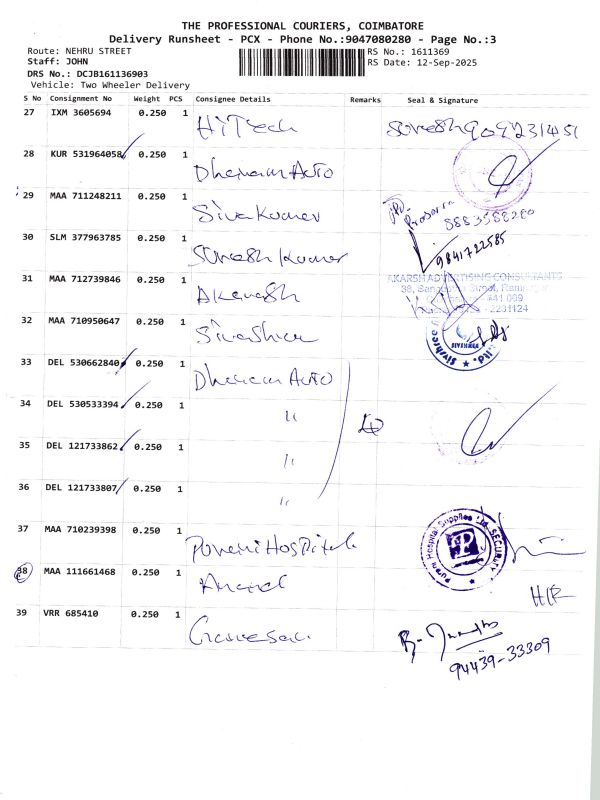 THE PROFESSIONAL COURIERS, COIMBATORE
Delivery Runsheet - PCX - Phone No.:9047080280 - Page No.:3
Route: NEHRU STREET RS No.: 1611369
Staff: JOHN RS Date: 12-Sep-2025
DRS No.: DCJB161136903
Vehicle: Two Wheeler Delivery
S No Consignment No Weight PCS Consignee Details Remarks Seal & Signature
27 IXM 3605694 0.250 1 HiTech Suresh 9092231451
28 KUR 531964058 0.250 1 Dhanam Auto
29 MAA 711248211 0.250 1 Siva Kumar 8883588280
30 SLM 377963785 0.250 1 Suresh Kumar 9841722585
31 MAA 712739846 0.250 1 Akarash AKARSH ADVERTISING CONSULTANTS
32 MAA 710950647 0.250 1 Sivashree
33 DEL 530662840 0.250 1 Dhanam Auto
34 DEL 530533394 0.250 1 "
35 DEL 121733862 0.250 1 "
36 DEL 121733807 0.250 1 "
37 MAA 710239398 0.250 1 Poveni Hospital Purani Hospital Supplies Ltd. SECURITY
38 MAA 111661468 0.250 1 Anand H/R
39 VRR 685410 0.250 1 Ganesan
94439-33309